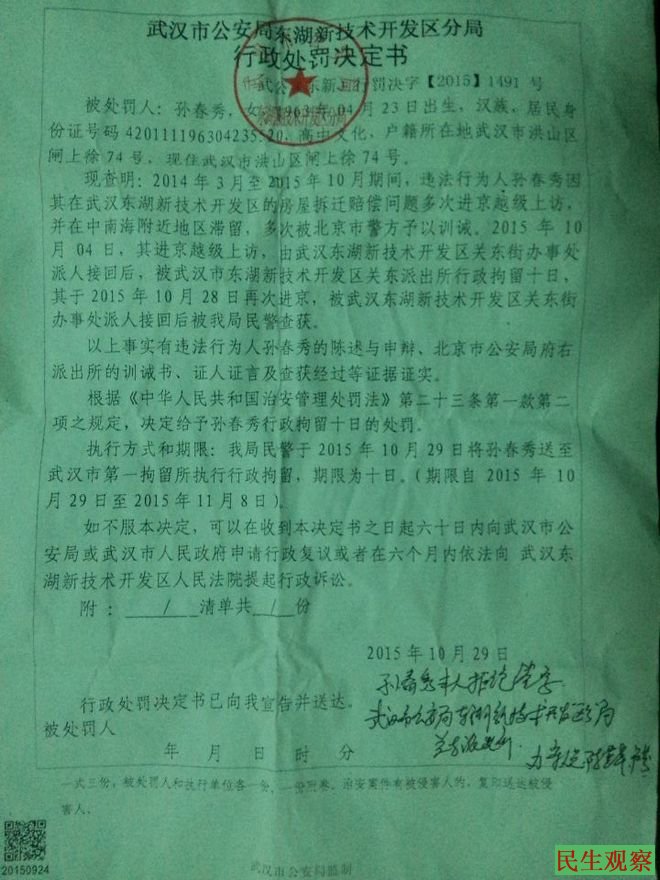 武汉市公安局东湖新技术开发区分局
行政处罚决定书
武公 东新 行罚决字【2015】1491 号
被处罚人：孙春秀，女 1963 年 04 月 23 日出生，汉族，居民身
份证号码 420111196304235520，高中文化，户籍所在地武汉市洪山区
闸上徐 74 号，现住武汉市洪山区闸上徐 74 号。
现查明：2014 年 3 月至 2015 年 10 月期间，违法行为人孙春秀因
其在武汉东湖新技术开发区的房屋拆迁赔偿问题多次进京越级上访，
并在中南海附近地区滞留，多次被北京市警方予以训诫。2015 年 10
月 04 日，其进京越级上访，由武汉东湖新技术开发区关东街办事处
派人接回后，被武汉市东湖新技术开发区关东派出所行政拘留十日，
其于 2015 年 10 月 28 日再次进京，被武汉东湖新技术开发区关东街
办事处派人接回后被我局民警查获。
以上事实有违法行为人孙春秀的陈述与申辩、北京市公安局府右
派出所的训诫书、证人证言及查获经过等证据证实。
根据《中华人民共和国治安管理处罚法》第二十三条第一款第二
项之规定，决定给予孙春秀行政拘留十日的处罚。
执行方式和期限：我局民警于 2015 年 10 月 29 日将孙春秀送至
武汉市第一拘留所执行行政拘留，期限为十日。（期限自 2015 年 10
月 29 日至 2015 年 11 月 8 日）。
如不服本决定，可以在收到本决定书之日起六十日内向武汉市公
安局或武汉市人民政府申请行政复议或者在六个月内依法向 武汉东
湖新技术开发区人民法院提起行政诉讼。
附：  /  清单共 / 份
2015 年 10 月 29 日
孙春秀本人拒绝签字
行政处罚决定书已向我宣告并送达。
武汉市公安局东湖新技术开发区分局
被处罚人
关东派出所
年 月 日 时 分
办案人
一式三份，被处罚人和执行单位各一份，一份附卷。治安案件有被侵害人的，复印送达被侵
害人。
20150924
武汉市公安局监制
民生观察